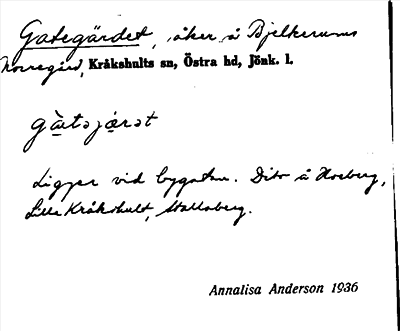 Gategärdet, åker å Bjelkerums
Norregård, Kråkshults sn, Östra hd, Jönk. l.
gàtəjárət
Ligger vid bygatan. Dito å Hoeberg,
Lilla Kråkshult, Stallaberg.
Annalisa Anderson 1936